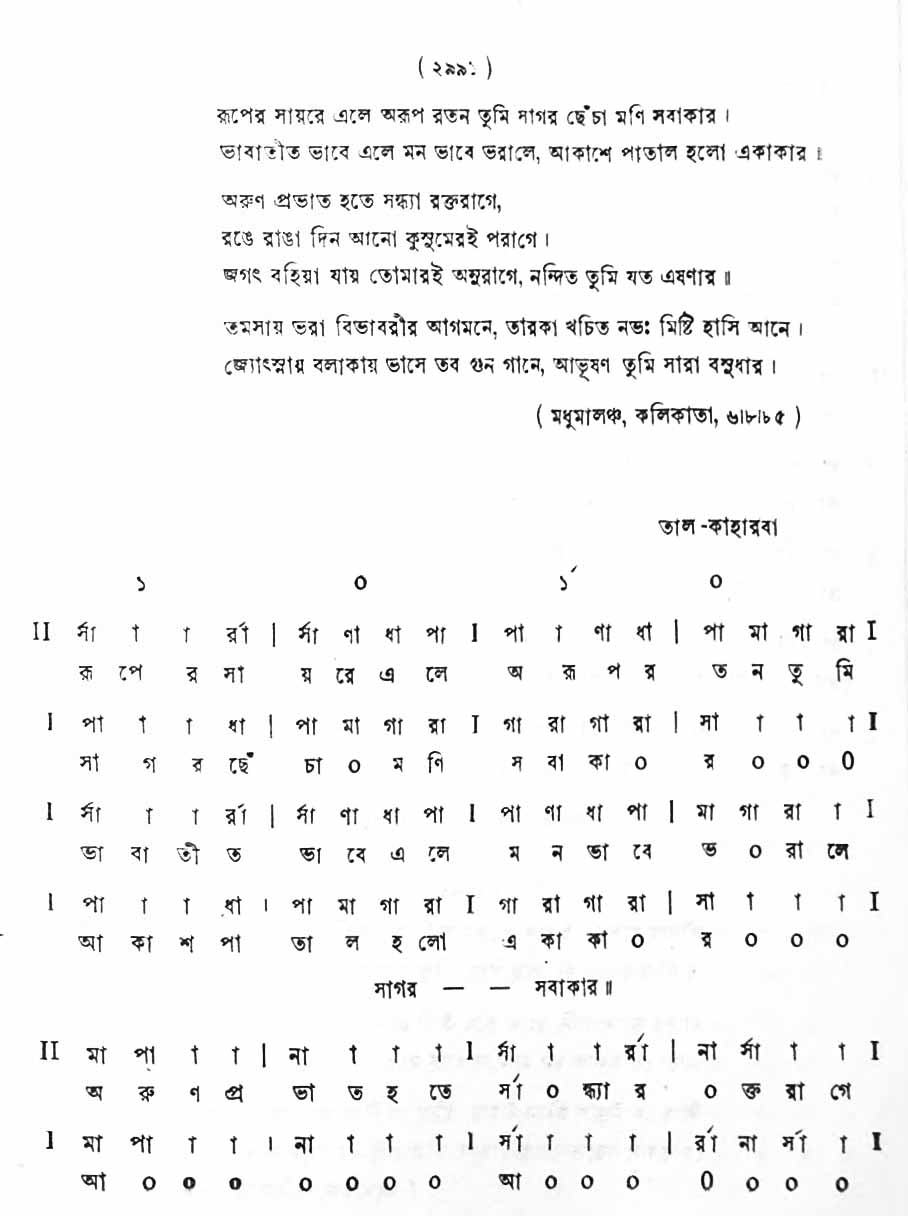 ( ২৯৯১ )
রূপের সায়রে এলে অরূপ রতন তুমি সাগর ছেঁচা মণি সবাকার ।
ভাবাতীত ভাবে এলে মন ভাবে ভরালে, আকাশে পাতাল হলো একাকার ॥
অরুণ প্রভাত হতে সন্ধ্যা রক্তরাগে,
রঙে রাঙা দিন আনো কুসুমেরই পরাগে ।
জগৎ বহিয়া যায় তোমারই অনুরাগে, নন্দিত তুমি যত এষণার ॥
তমসায় ভরা বিভাবরীর আগমনে, তারকা খচিত নভঃ মিষ্টি হাসি আনে ।
জ্যোৎস্নায় বলাকায় ভাসে তব গুন গানে, আভূষণ তুমি সারা বসুধার ।
( মধুমালঞ্চ, কলিকাতা, ৬।৮।৮৫ )
তাল -কাহারবা
১ ০ ১´ ০
II র্সা া া র্রা | র্সা ণা ধা পা I পা া ণা ধা | পা মা গা রা I
রূ পে র সা য় রে এ লে অ রূ প র ত ন তু মি
I পা া া ধা | পা মা গা রা I গা রা গা রা | সা া া া I
সা গ র ছেঁ চা ০ ম ণি স বা কা ০ র ০ ০ ০
I র্সা া া র্রা | র্সা ণা ধা পা I পা ণা ধা পা | মা গা রা া I
ভা বা তী ত ভা বে এ লে ম ন ভা বে ভ ০ রা লে
I পা া া ধা । পা মা গা রা I গা রা গা রা | সা া া া I
আ কা শ পা তা ল হ লো এ কা কা ০ র ০ ০ ০
সাগর — — সবাকার॥
II মা পা া া | না া া া I র্সা া া র্রা | না র্সা া া I
অ রু ণ প্র ভা ত হ তে র্সা ০ ন্ধ্যা র ০ ক্ত রা গে
I মা পা া া । না া া া I র্সা া া া | র্রা না র্সা া I
আ ০ ০ ০ ০ ০ ০ ০ আ ০ ০ ০ ০ ০ ০ ০